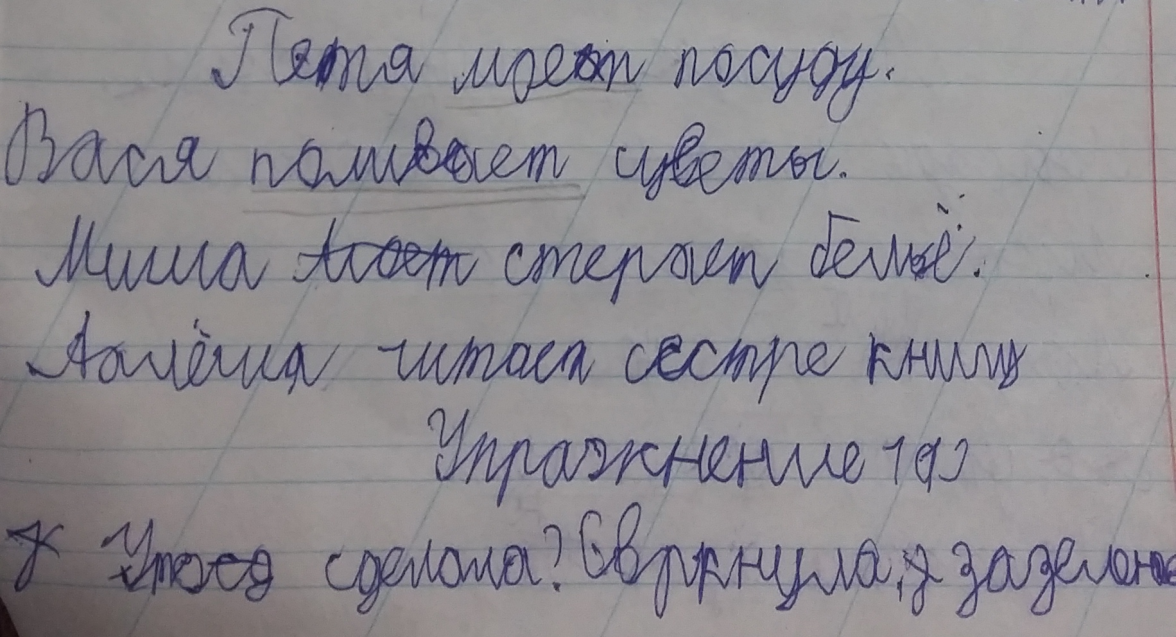 Петя моет посуду.
Вася поливает цветы.
Миша стерает бельё.
Аалёша читает сестре книгу
Упражнение 193
сделала? Свркнула, зазелене